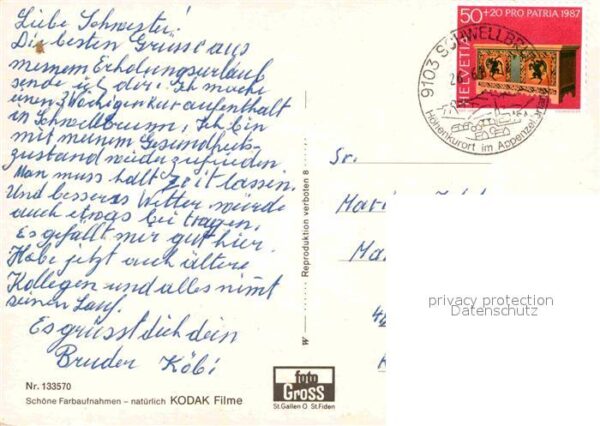 Liebe Schwester!
Die besten Grüsse aus
meinem Erholungsurlaub
sende ich dir. Ich mache
einen 3 Wöchigen Kuraufenthalt
in Schwellbrunn, Ich bin
mit meinem Gesundheits-
zustand wieder zufrieden
Man muss halt Zeit lassen.
Und besseres Wetter würde
auch etwas bei tragen.
Es gefällt mir gut hier.
Habe jetzt auch ältere
Kollegen und alles nimt
seinen Lauf.
Es grüsst dich dein
Bruder Köbi
Nr. 133570
Schöne Farbaufnahmen – natürlich KODAK Filme
W
Reproduktion verboten 8
foto
Gross
St.Gallen O St.Fiden
50+20 PRO PATRIA 1987
HELVETIA
9103 SCHWELLBRUNN
Höhenkurort im Appenzel
Sr.
Mari
Ma
privacy protection
Datenschutz